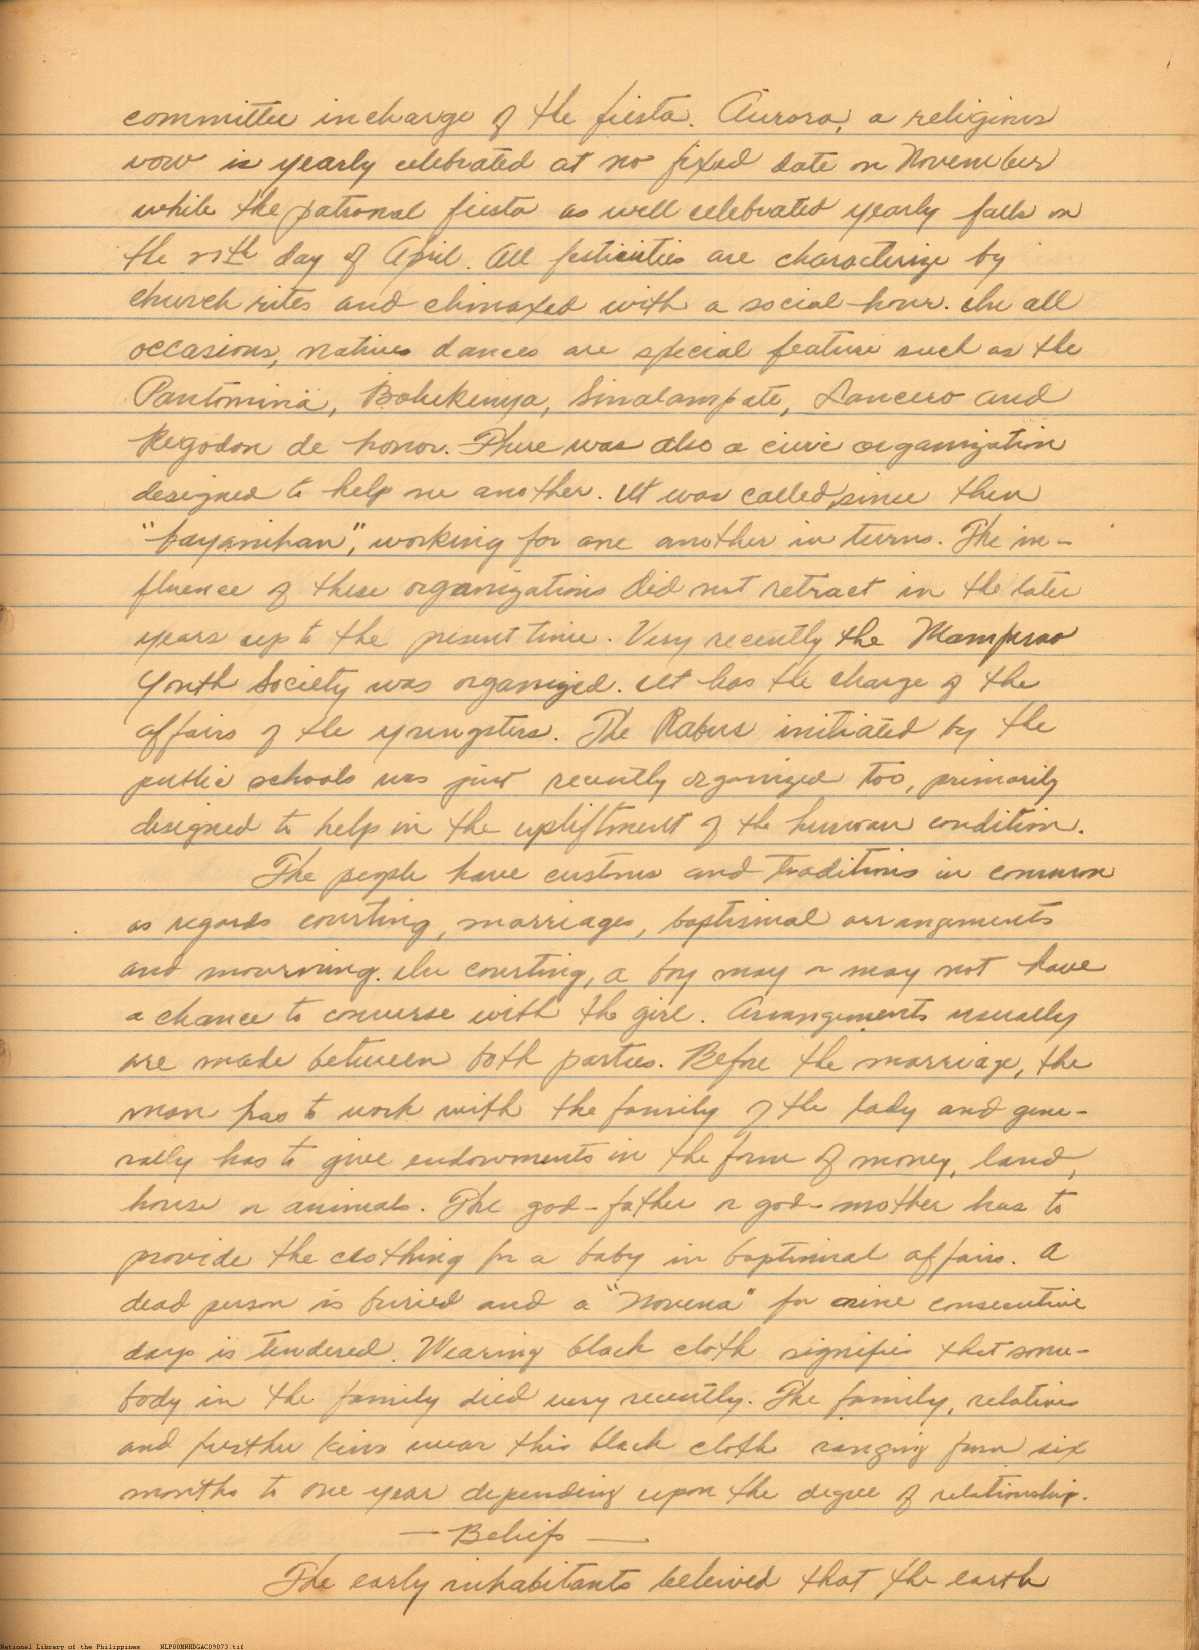 committee incharge of the fiesta. Aurora, a religious
vow is yearly celebrated at no fixed date on November
while the patronal fiesta as well celebrated yearly falls on
the day of April. All festivities are characterize by
church rites and climaxed with a social-hour. In all
occasions, natives dances are special feature such as the
Pantomina, Lancero and
Regodon de honor. There was also a civic organization
designed to help one another. It was called, since then
"bayanihan", working for one another in turns. The in-
fluence of these organizations did not retract in the later
years up to the present time. Very recently the
Youth Society was organized. It has the charge of the
affairs of the youngsters. The Rabus initiated by the
public schools was just recently organized too, primarily
designed to help in the upliftment of the human condition.
The people have customs and traditions in common
as regards courting, marriages, baptismal arrangements
and mourning. In courting, a boy may or may not have
a chance to converse with the girl. Arrangements usually
are made between both parties. Before the marriage, the
man has to work with the family of the lady and gene-
rally has to give endowments in the form of money, land,
house or animals. The god-father or god-mother has to
provide the clothing for a baby in baptismal affairs. A
dead person is buried and a "Novena" for nine consecutive
days is tendered. Wearing black cloth signifies that some-
body in the family died very recently. The family, relatives
and further kins wear this black cloth ranging from six
months to one year depending upon the degree of relationship.
— Beliefs —
The early inhabitants beleived that the earth
National Library of the Philippines NLP00MNHDGAC09073.tif